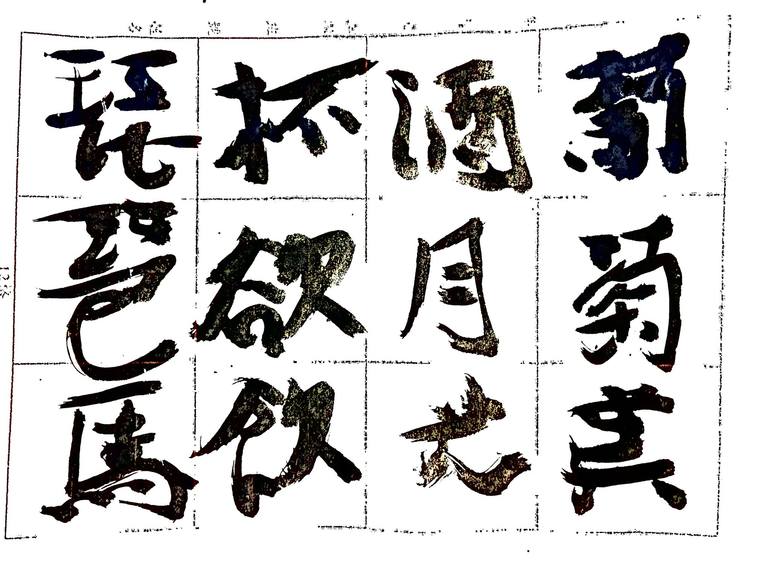 葡萄美
酒月光
杯欲飲
琵琶馬